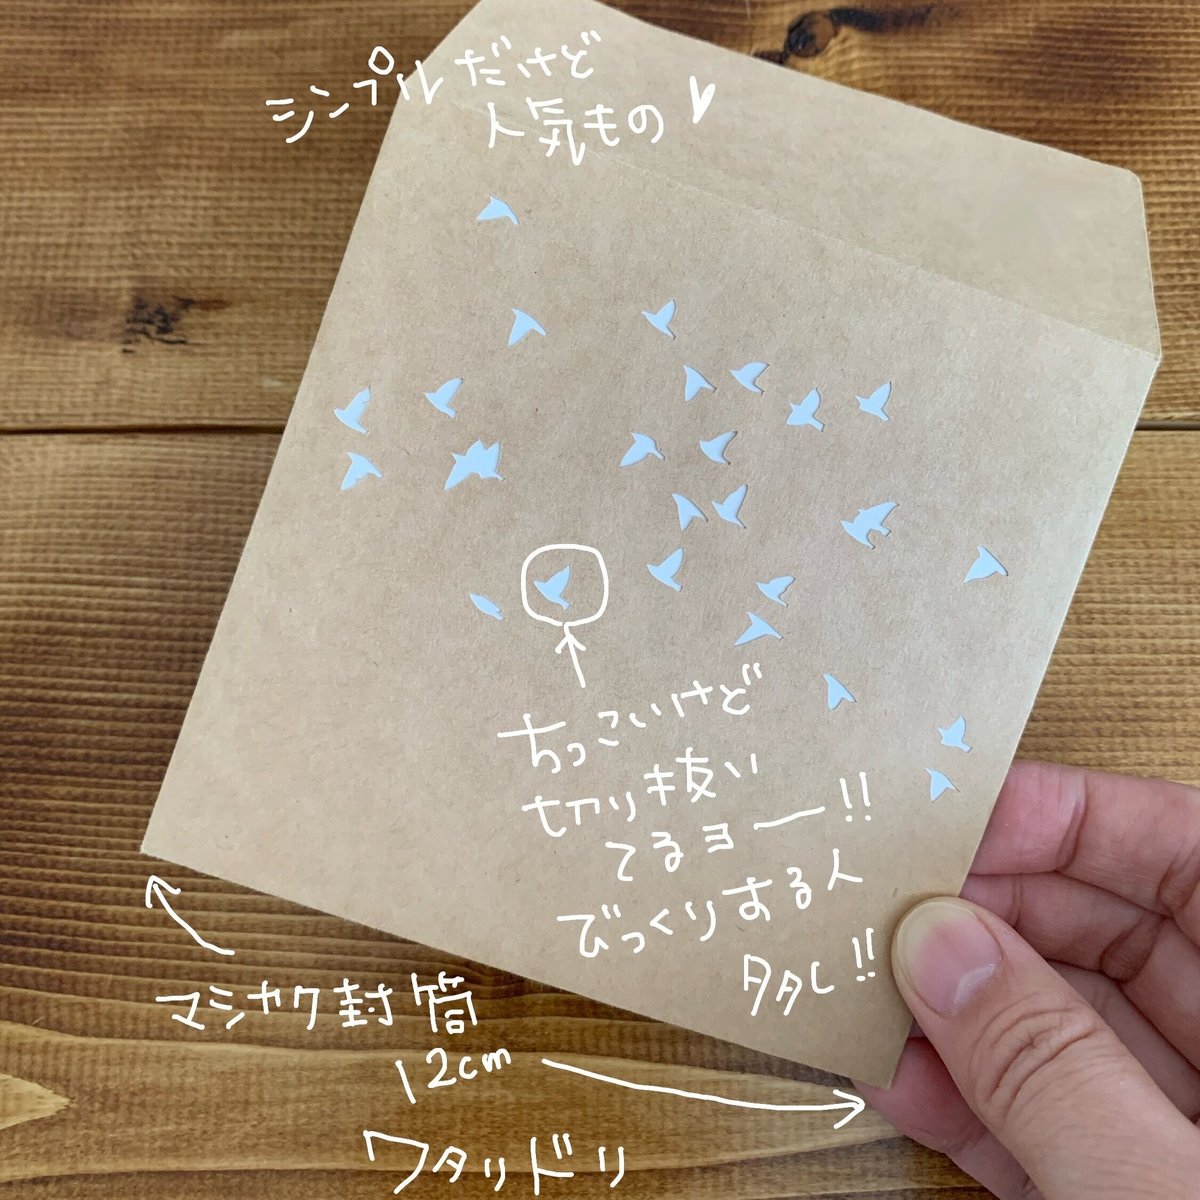 シンプルだけど
人気もの
ちっこいけど
切り抜い
てるョー!!
びっくりする人
多し!!
マシカク封筒
12cm
ワタリドリ